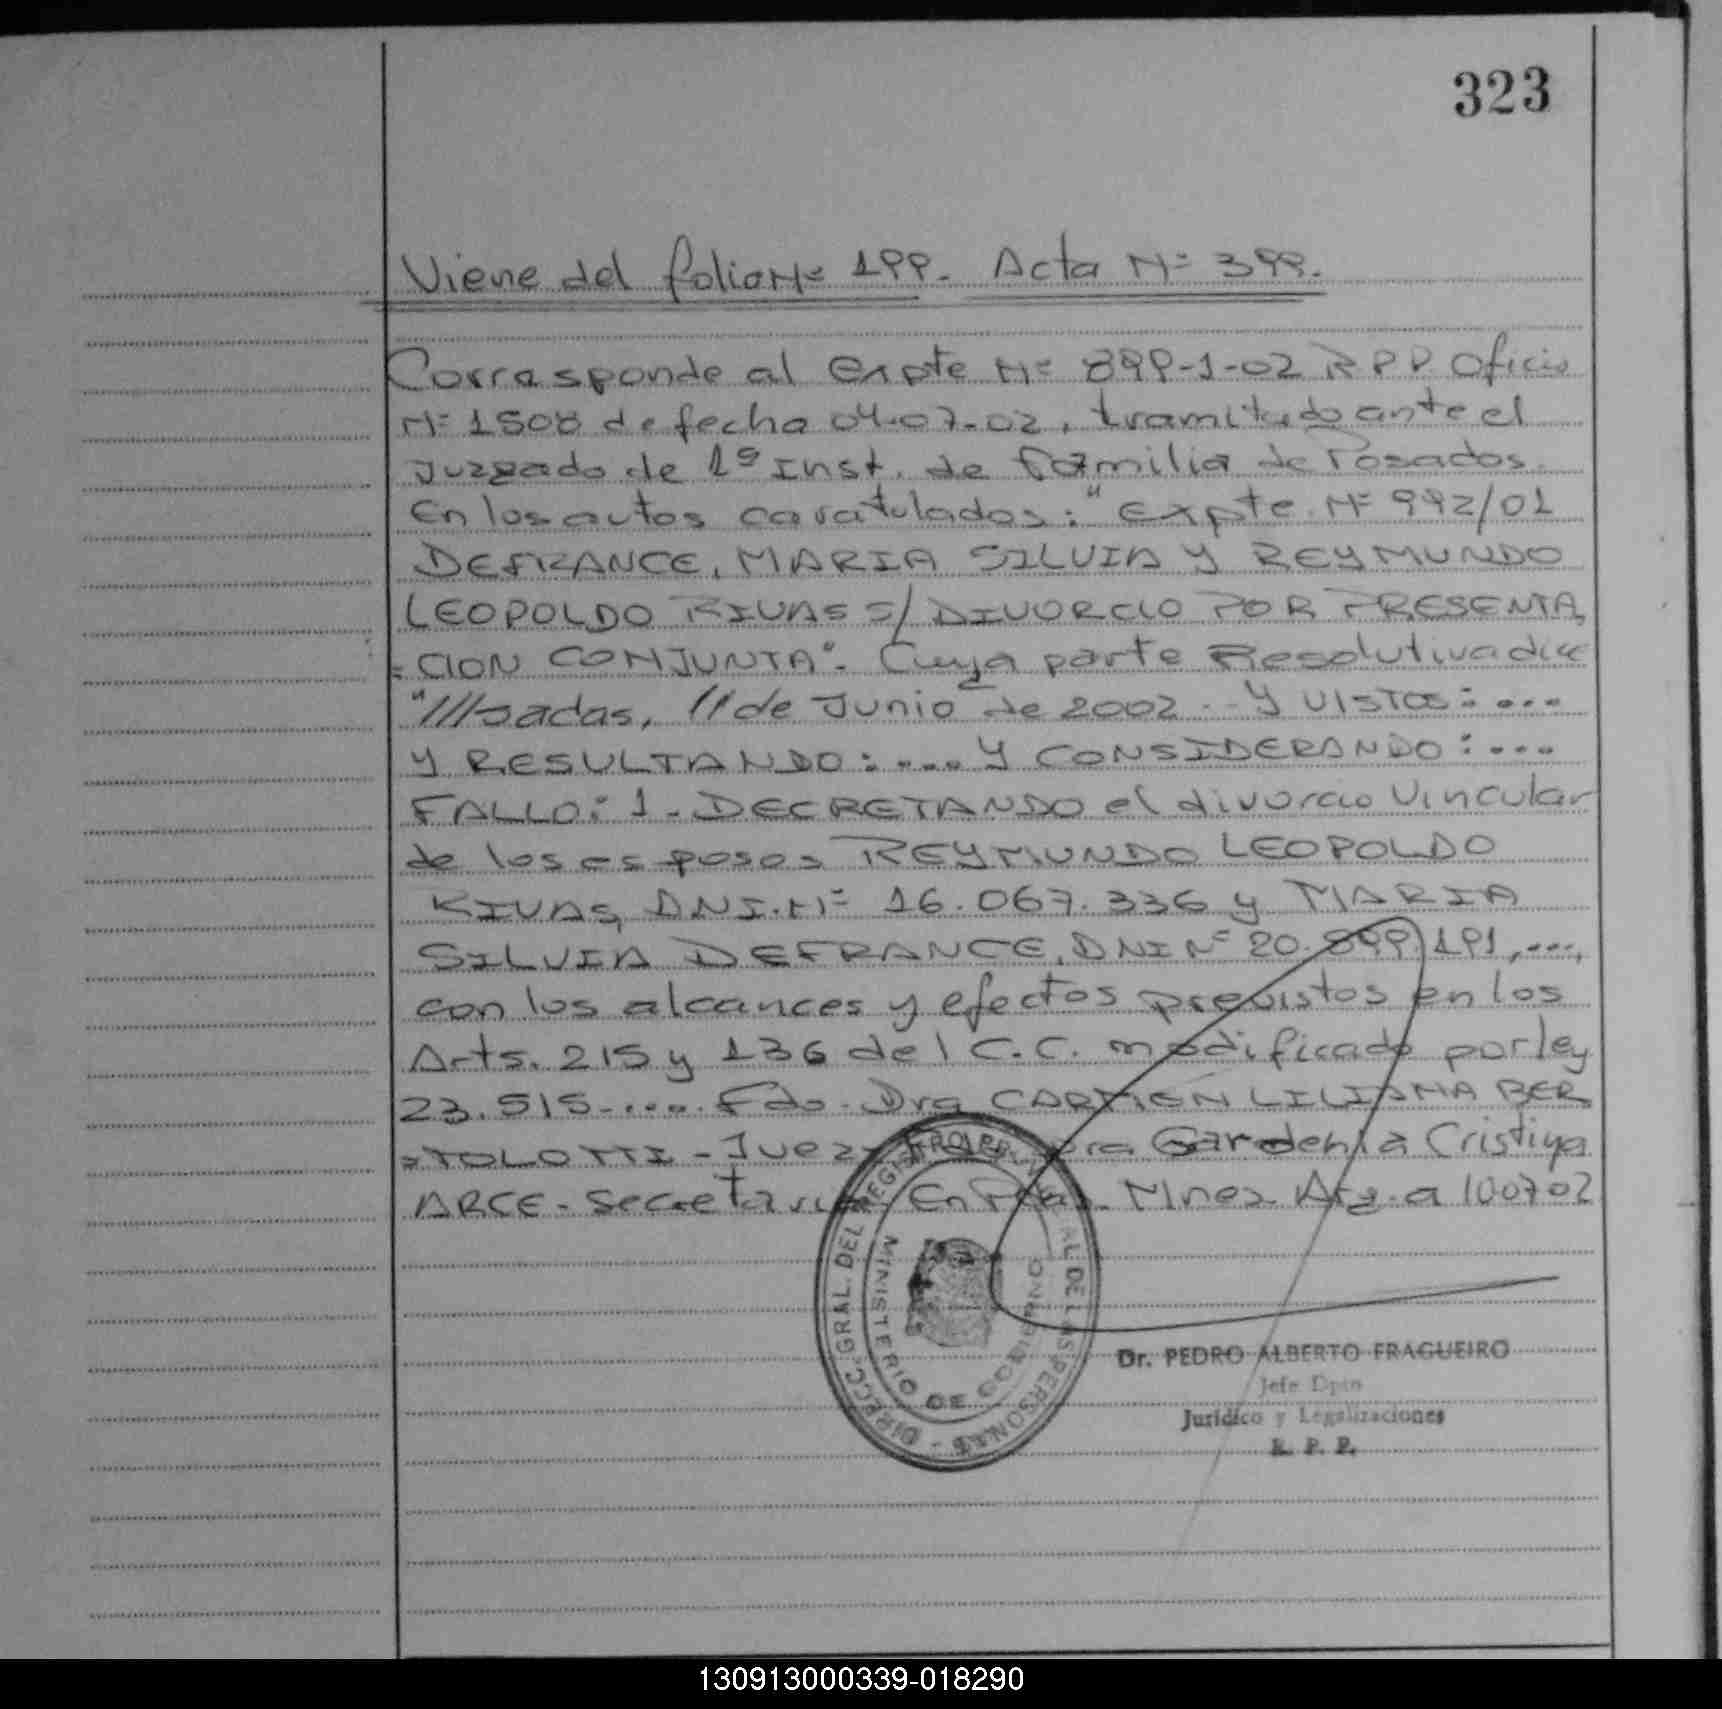 323
Viene del folio Nº 199. Acta Nº 399.
Corresponde al Expte Nº 899-1-02 R P P. Oficio
Nº 1508 de fecha 04-07-02, tramitado ante el
Juzgado de 1º Inst. de Familia de Posadas
En los autos caratulados: "Expte. Nº 992/01
DEFRANCE, MARIA SILVIA Y REYMUNDO
LEOPOLDO RIVAS S/ DIVORCIO POR PRESENTA
=CION CONJUNTA". Cuya parte Resolutiva dice
"///sadas, 11 de Junio de 2002... Y VISTOS: ...
Y RESULTANDO: .... Y CONSIDERANDO: ....
FALLO: 1 - DECRETANDO el divorcio Vincular
de los esposos REYMUNDO LEOPOLDO
RIVAS, DNI. Nº 16.067.336 y MARIA
SILVIA DEFRANCE, DNI Nº 20.899.191, ....,
con los alcances y efectos previstos en los
Arts. 215 y 136 del C.C. modificado por ley
23.515-.... Fdo. Dra CARMEN LILIANA BER
=TOLOTTI - Juez Gardenia Cristina
ARCE - Secretaria En Mnes. Arg. a 100702
DIRECC. GRAL. DEL REGISTRO PROVINCIAL DE LAS PERSONAS
MINISTERIO DE GOBIERNO
Dr. PEDRO ALBERTO FRAGUEIRO
Jefe Dpto
Jurídico y Legalizaciones
R. P. P.
130913000339-018290